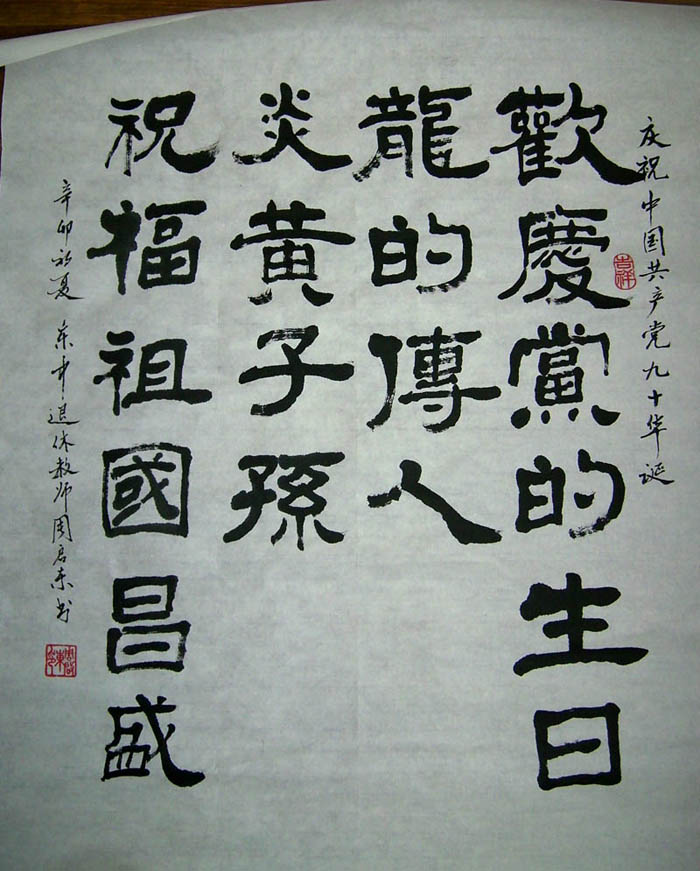 庆祝中国共产党九十华诞
吉祥
歡慶黨的生日
龍的傳人
炎黃子孫
祝福祖國昌盛
辛卯初夏 东中退休教师周启东书